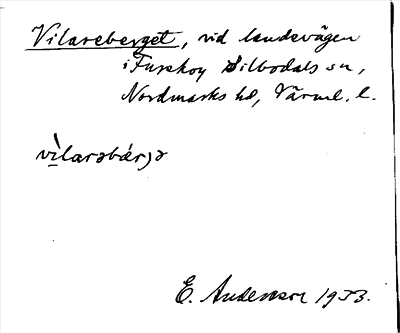 Vilareberget, vid landsvägen
i Furskog Silbodals sn,
Nordmarks hd, Värml. l.
vìlarəbár̡jə
E. Andersson 1933.